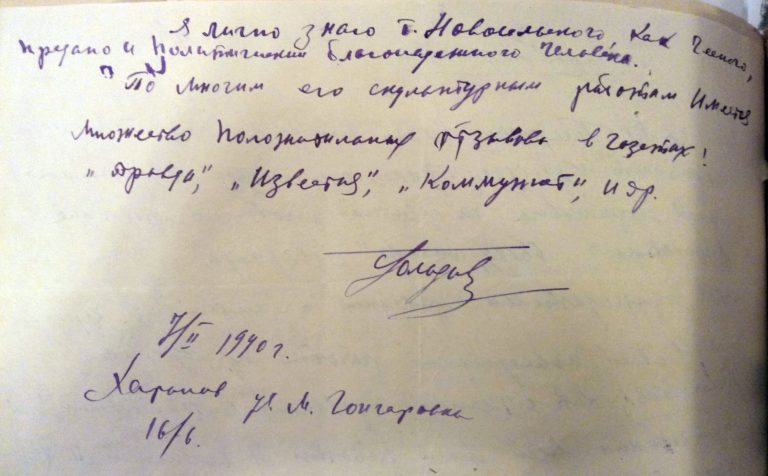 Я лично знаю т. Новосельского как честного,
предано и политически благонадежного человека.
По многим его скульптурным работам имеется
множество положительных отзывов в газетах:
„Правда", „Известия", „Коммунист", и др.
7/II 1940 г.
Харьков ул. М. Гончаровка
16/6.